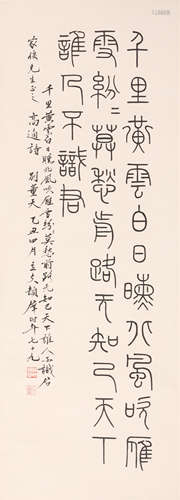 千里黃雲白日曛北風吹雁
雪紛〻莫愁前路无知己天下
誰人不識君
千里黃雲白日曛北風吹雁雪紛紛莫愁前路无知己天下誰人不識君
高適詩 別董大 乙丑四月 時年七十九
先生正之